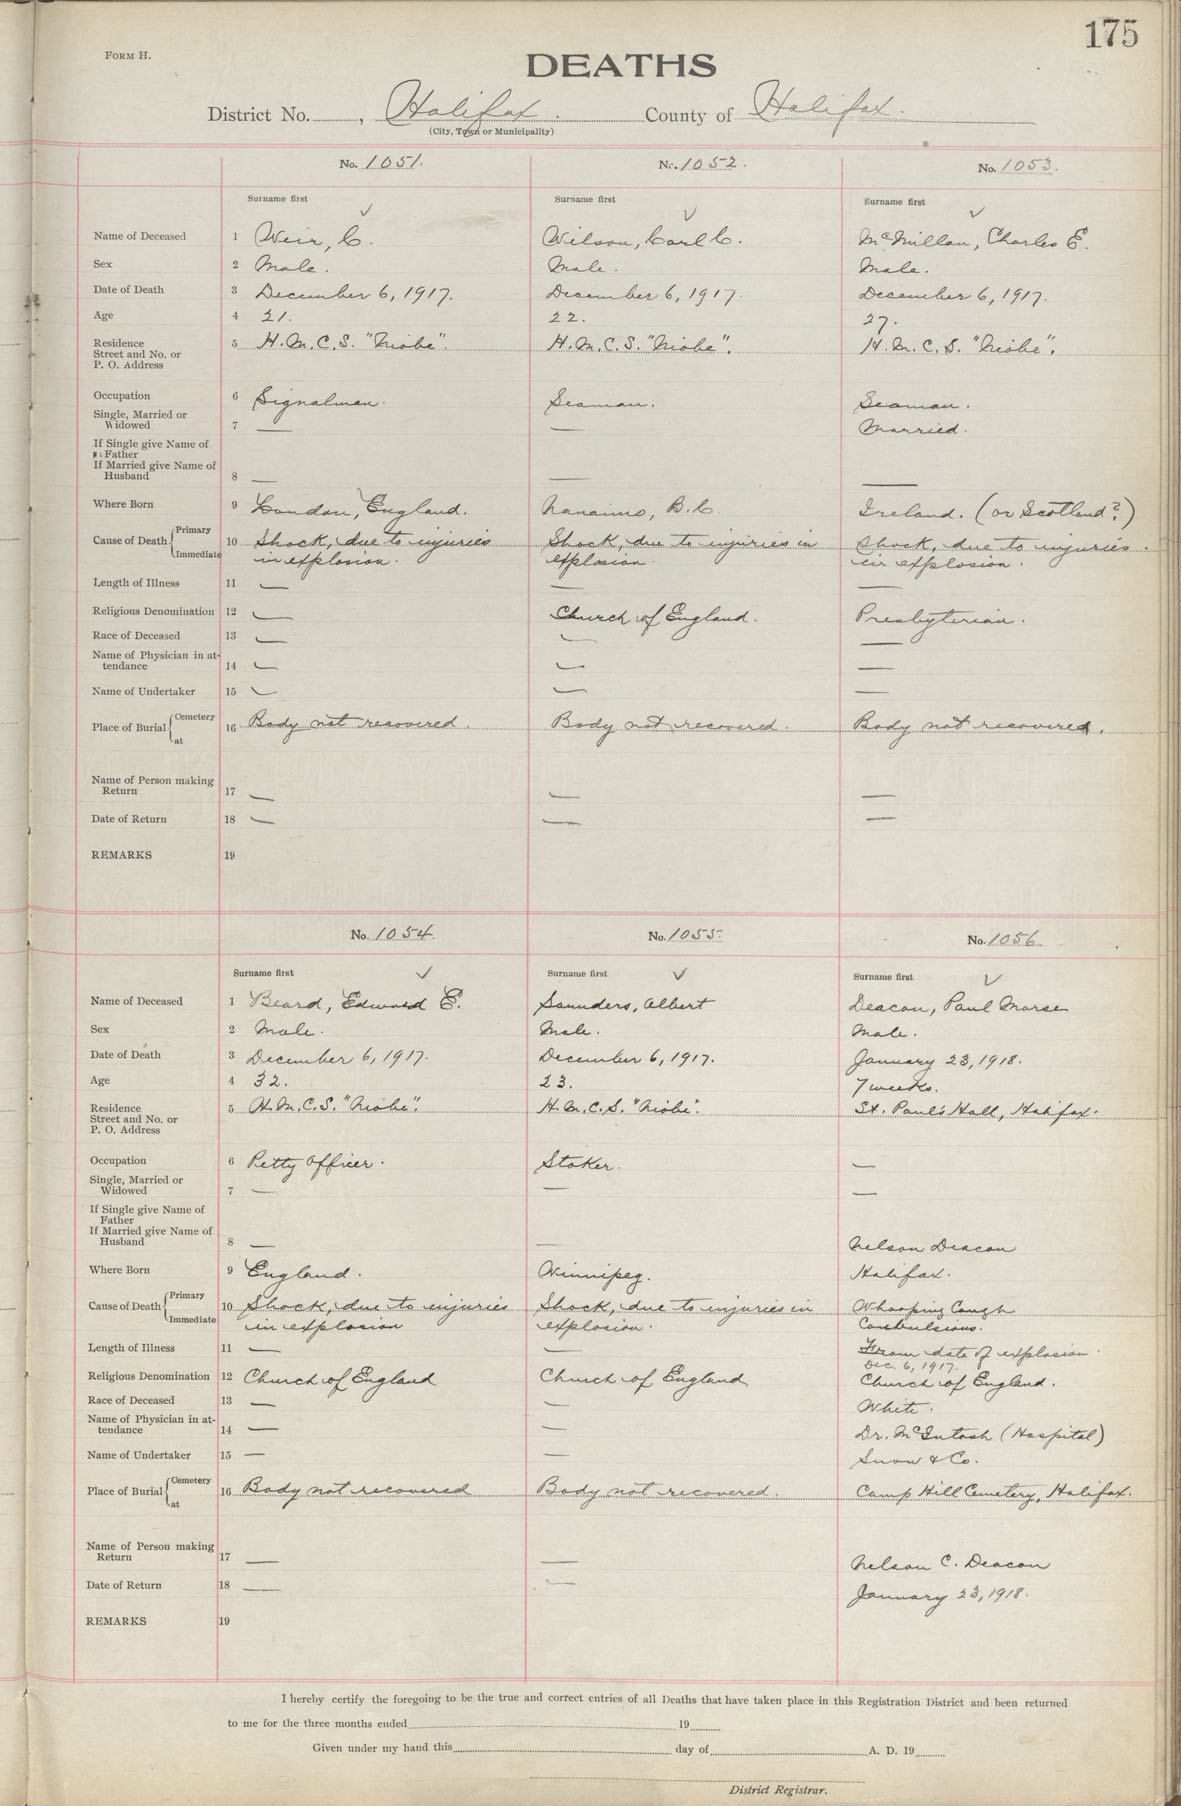 175
FORM H.
DEATHS
District No. , Halifax. County of Halifax.
(City, Town or Municipality)
No. 1051. No. 1052. No. 1053.
Surname first Surname first Surname first
Name of Deceased 1 Weir, C. Wilson, Carl C. McMillan, Charles E.
Sex 2 Male. Male. Male.
Date of Death 3 December 6, 1917. December 6, 1917. December 6, 1917.
Age 4 21. 22. 27.
Residence 5 H.M.C.S. "Niobe". H.M.C.S. "Niobe". H.M.C.S. "Niobe".
Street and No. or
P. O. Address
Occupation 6 Signalman. Seaman. Seaman.
Single, Married or
Widowed 7 — — Married.
If Single give Name of
Father
If Married give Name of
Husband 8 — — —
Where Born 9 London, England. Nanaimo, B.C. Ireland. (or Scotland?)
Cause of Death Primary
Immediate 10 Shock, due to injuries Shock, due to injuries in Shock, due to injuries
in explosion. explosion. in explosion.
Length of Illness 11 — — —
Religious Denomination 12 — Church of England. Presbyterian.
Race of Deceased 13 — — —
Name of Physician in at-
tendance 14 — — —
Name of Undertaker 15 — — —
Place of Burial Cemetery
at 16 Body not recovered. Body not recovered. Body not recovered.
Name of Person making
Return 17 — — —
Date of Return 18 — — —
REMARKS 19
No. 1054. No. 1055. No. 1056.
Surname first Surname first Surname first
Name of Deceased 1 Beard, Edward E. Saunders, Albert Deacon, Paul Morse
Sex 2 Male. Male. Male.
Date of Death 3 December 6, 1917. December 6, 1917. January 23, 1918.
Age 4 32. 23. 7 weeks.
Residence 5 H.M.C.S. "Niobe". H.M.C.S. "Niobe". St. Paul's Hall, Halifax.
Street and No. or
P. O. Address
Occupation 6 Petty Officer. Stoker. —
Single, Married or
Widowed 7 — — —
If Single give Name of
Father
If Married give Name of
Husband 8 — — Nelson Deacon
Where Born 9 England. Winnipeg. Halifax.
Cause of Death Primary
Immediate 10 Shock, due to injuries Shock, due to injuries in Whooping Cough
in explosion explosion. Convulsions.
Length of Illness 11 — — From date of explosion.
Dec. 6, 1917.
Religious Denomination 12 Church of England Church of England Church of England.
Race of Deceased 13 — — White.
Name of Physician in at-
tendance 14 — — Dr. McIntosh (Hospital)
Name of Undertaker 15 — — Snow & Co.
Place of Burial Cemetery
at 16 Body not recovered Body not recovered. Camp Hill Cemetery, Halifax.
Name of Person making
Return 17 — — Nelson C. Deacon
Date of Return 18 — — January 23, 1918.
REMARKS 19
I hereby certify the foregoing to be the true and correct entries of all Deaths that have taken place in this Registration District and been returned
to me for the three months ended 19
Given under my hand this day of A. D. 19
District Registrar.